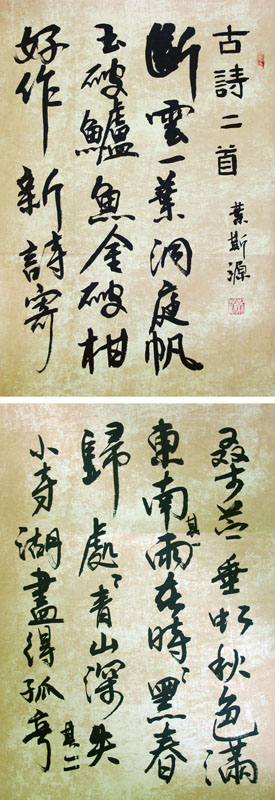 古詩二首 葉斯源
斷雲一葉洞庭帆
玉破鱸魚金破柑
好作新詩寄
桑苧垂虹秋色滿
東南 其一 雨在時々黑春
歸處々青山深失
小寺湖盡得孤亭 其二